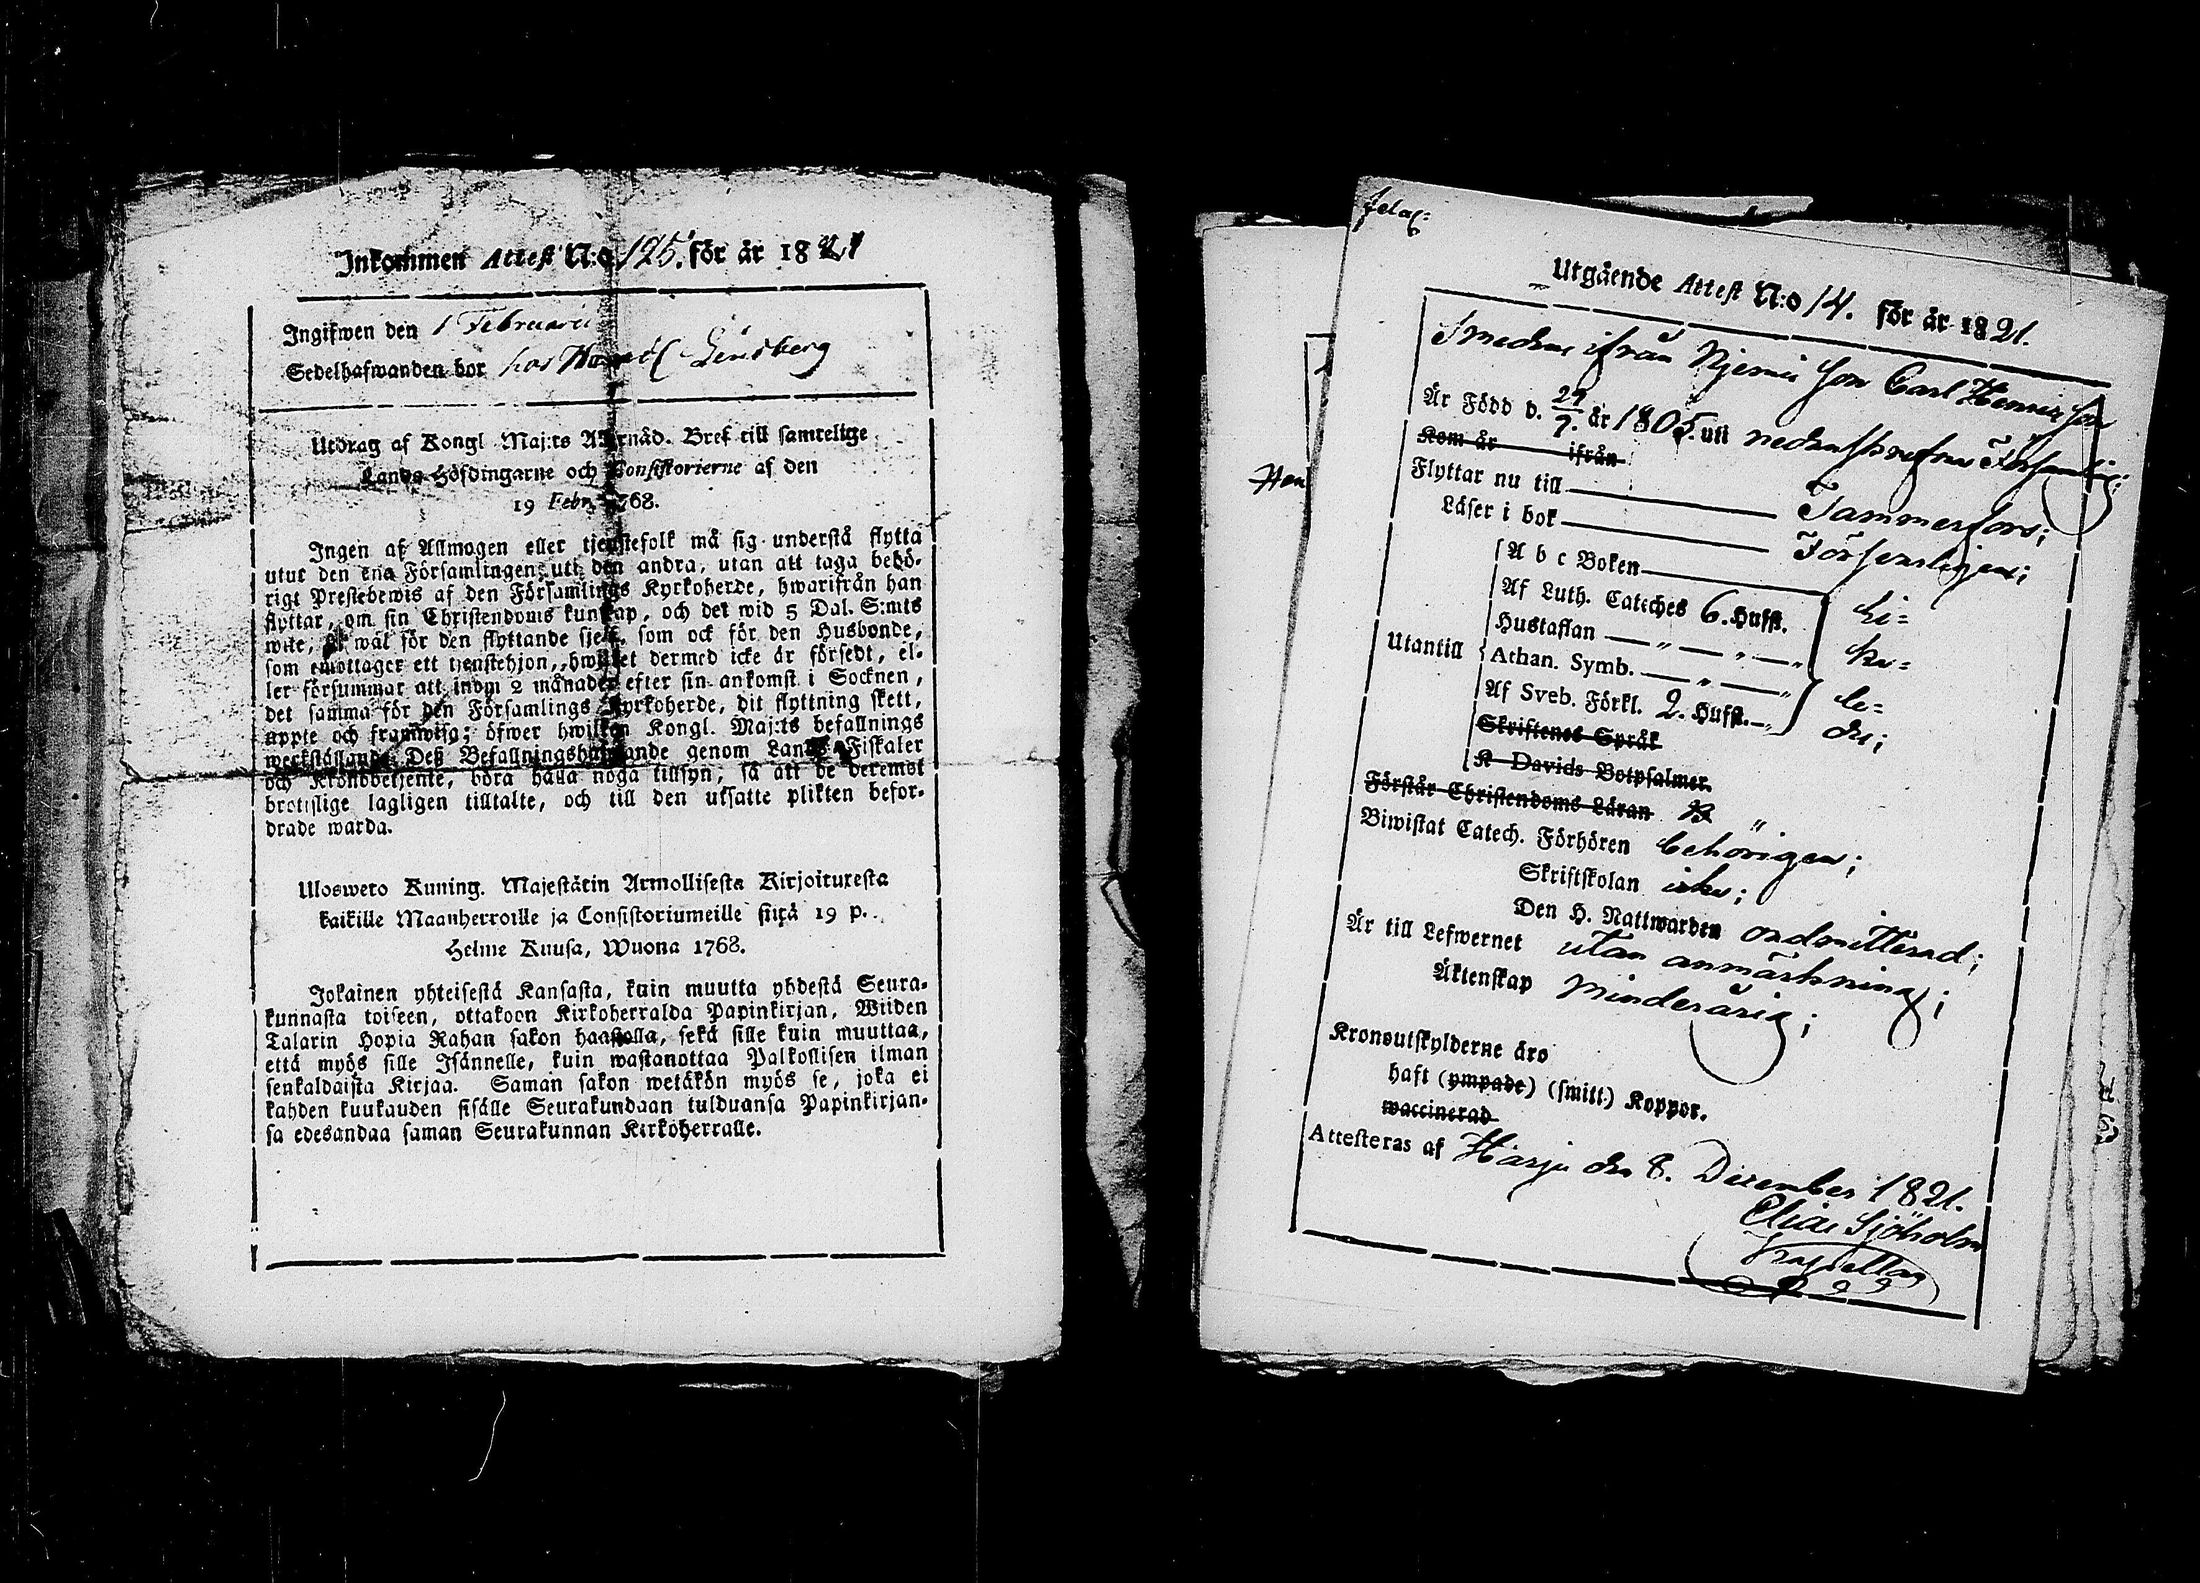 Inkommen Attest N:o 125. för år 1821
Ingifwen den 1 Februarii
Sedelhafwanden bor hos Lindberg
Utdrag af Kongl Maj:ts Allernåd. Bref till samtelige
Lands-Höfdingarne och Consistorierne af den
19 Febr. 1768.
Ingen af Allmogen eller tjenstefolk må sig understå flytta
utur den ena Församlingen uti den andra, utan att taga behö-
rigt Prestebewis af den Församlings Kyrkoherde, hwarifrån han
flyttar, om sin Christendoms kunskap, och det wid 5 Dal. S:mts
wite, så wäl för den flyttande sjelf, som ock för den Husbonde,
som emottager ett tjenstehjon, hwilket dermed icke är försedt, el-
ler försummar att inom 2 månader efter sin ankomst i Socknen,
det samma för den Församlings Kyrkoherde, dit flyttning skett,
uppte och framwisa; öfwer hwilken Kongl. Maj:ts befallnings
werkställande Deß Befallningshafwande genom Lands-Fiskaler
och Kronobetjente, böra hålla noga tillsyn, så att de deremot
brottslige lagligen tilltalte, och till den utsatte plikten befor-
drade warda.
Uloswето Kuning. Majestätin Armollisesta Kirjoituxesta
kaikille Maanherroille ja Consistoriumeille siitä 19 p.
Helme Kuusa, Wuona 1768.
Jokainen yhteisestä Kansasta, kuin muutta yhdestä Seura-
kunnasta toiseen, ottakoon Kirkoherralda Papinkirjan, Wiiden
Talarin Hopia Rahan sakon haastolla, sekä sille kuin muuttaa,
että myös sille Isännelle, kuin wastanottaa Palkollisen ilman
senkaldaista Kirjaa. Saman sakon wetäkön myös se, joka ei
kahden kuukauden sisälle Seurakundaan tulduansa Papinkirjan-
sa edesandaa saman Seurakunnan Kirkoherralle.
Utgående Attest N:o 14. för år 1821.
ifrån Njemis Son Carl Henricsson
Är Född d. 29/7. år 1805. uti nedanskrefne Församling;
Kom år ifrån
Flyttar nu till Tammerfors;
Läser i bok Försvarligen;
Utantill
A b c Boken
Af Luth. Catches 6. Hufst.
Hustaflan
Athan. Symb.
Af Sveb. Förkl. 2. Hufst.
Li=
ka=
le=
des;
Skriftenes Språk
K Davids Botpsalmer.
Förstår Christendoms Läran
Biwistat Catech. Förhören behörigen;
Skriftskolan icke;
Den H. Nattwarden oadmitterad;
Är till Lefwernet utan anmärkning;
Äktenskap Minderårig;
Kronoutskylderne äro
haft (ympade) (smitt.) Koppor.
waccinerad
Attesteras af Harju den 8. December 1821.
Elias Sjöholm